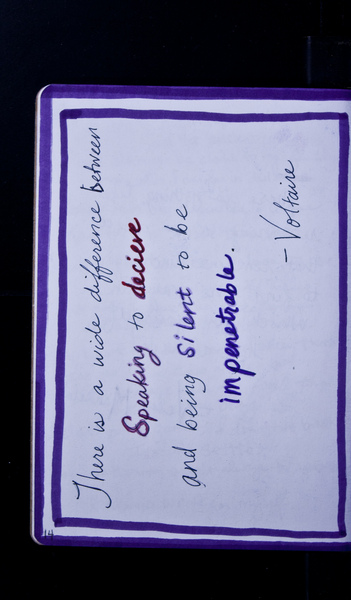 There is a wide difference between
Speaking to decieve
and being silent to be
impenetrable.
- Voltaire